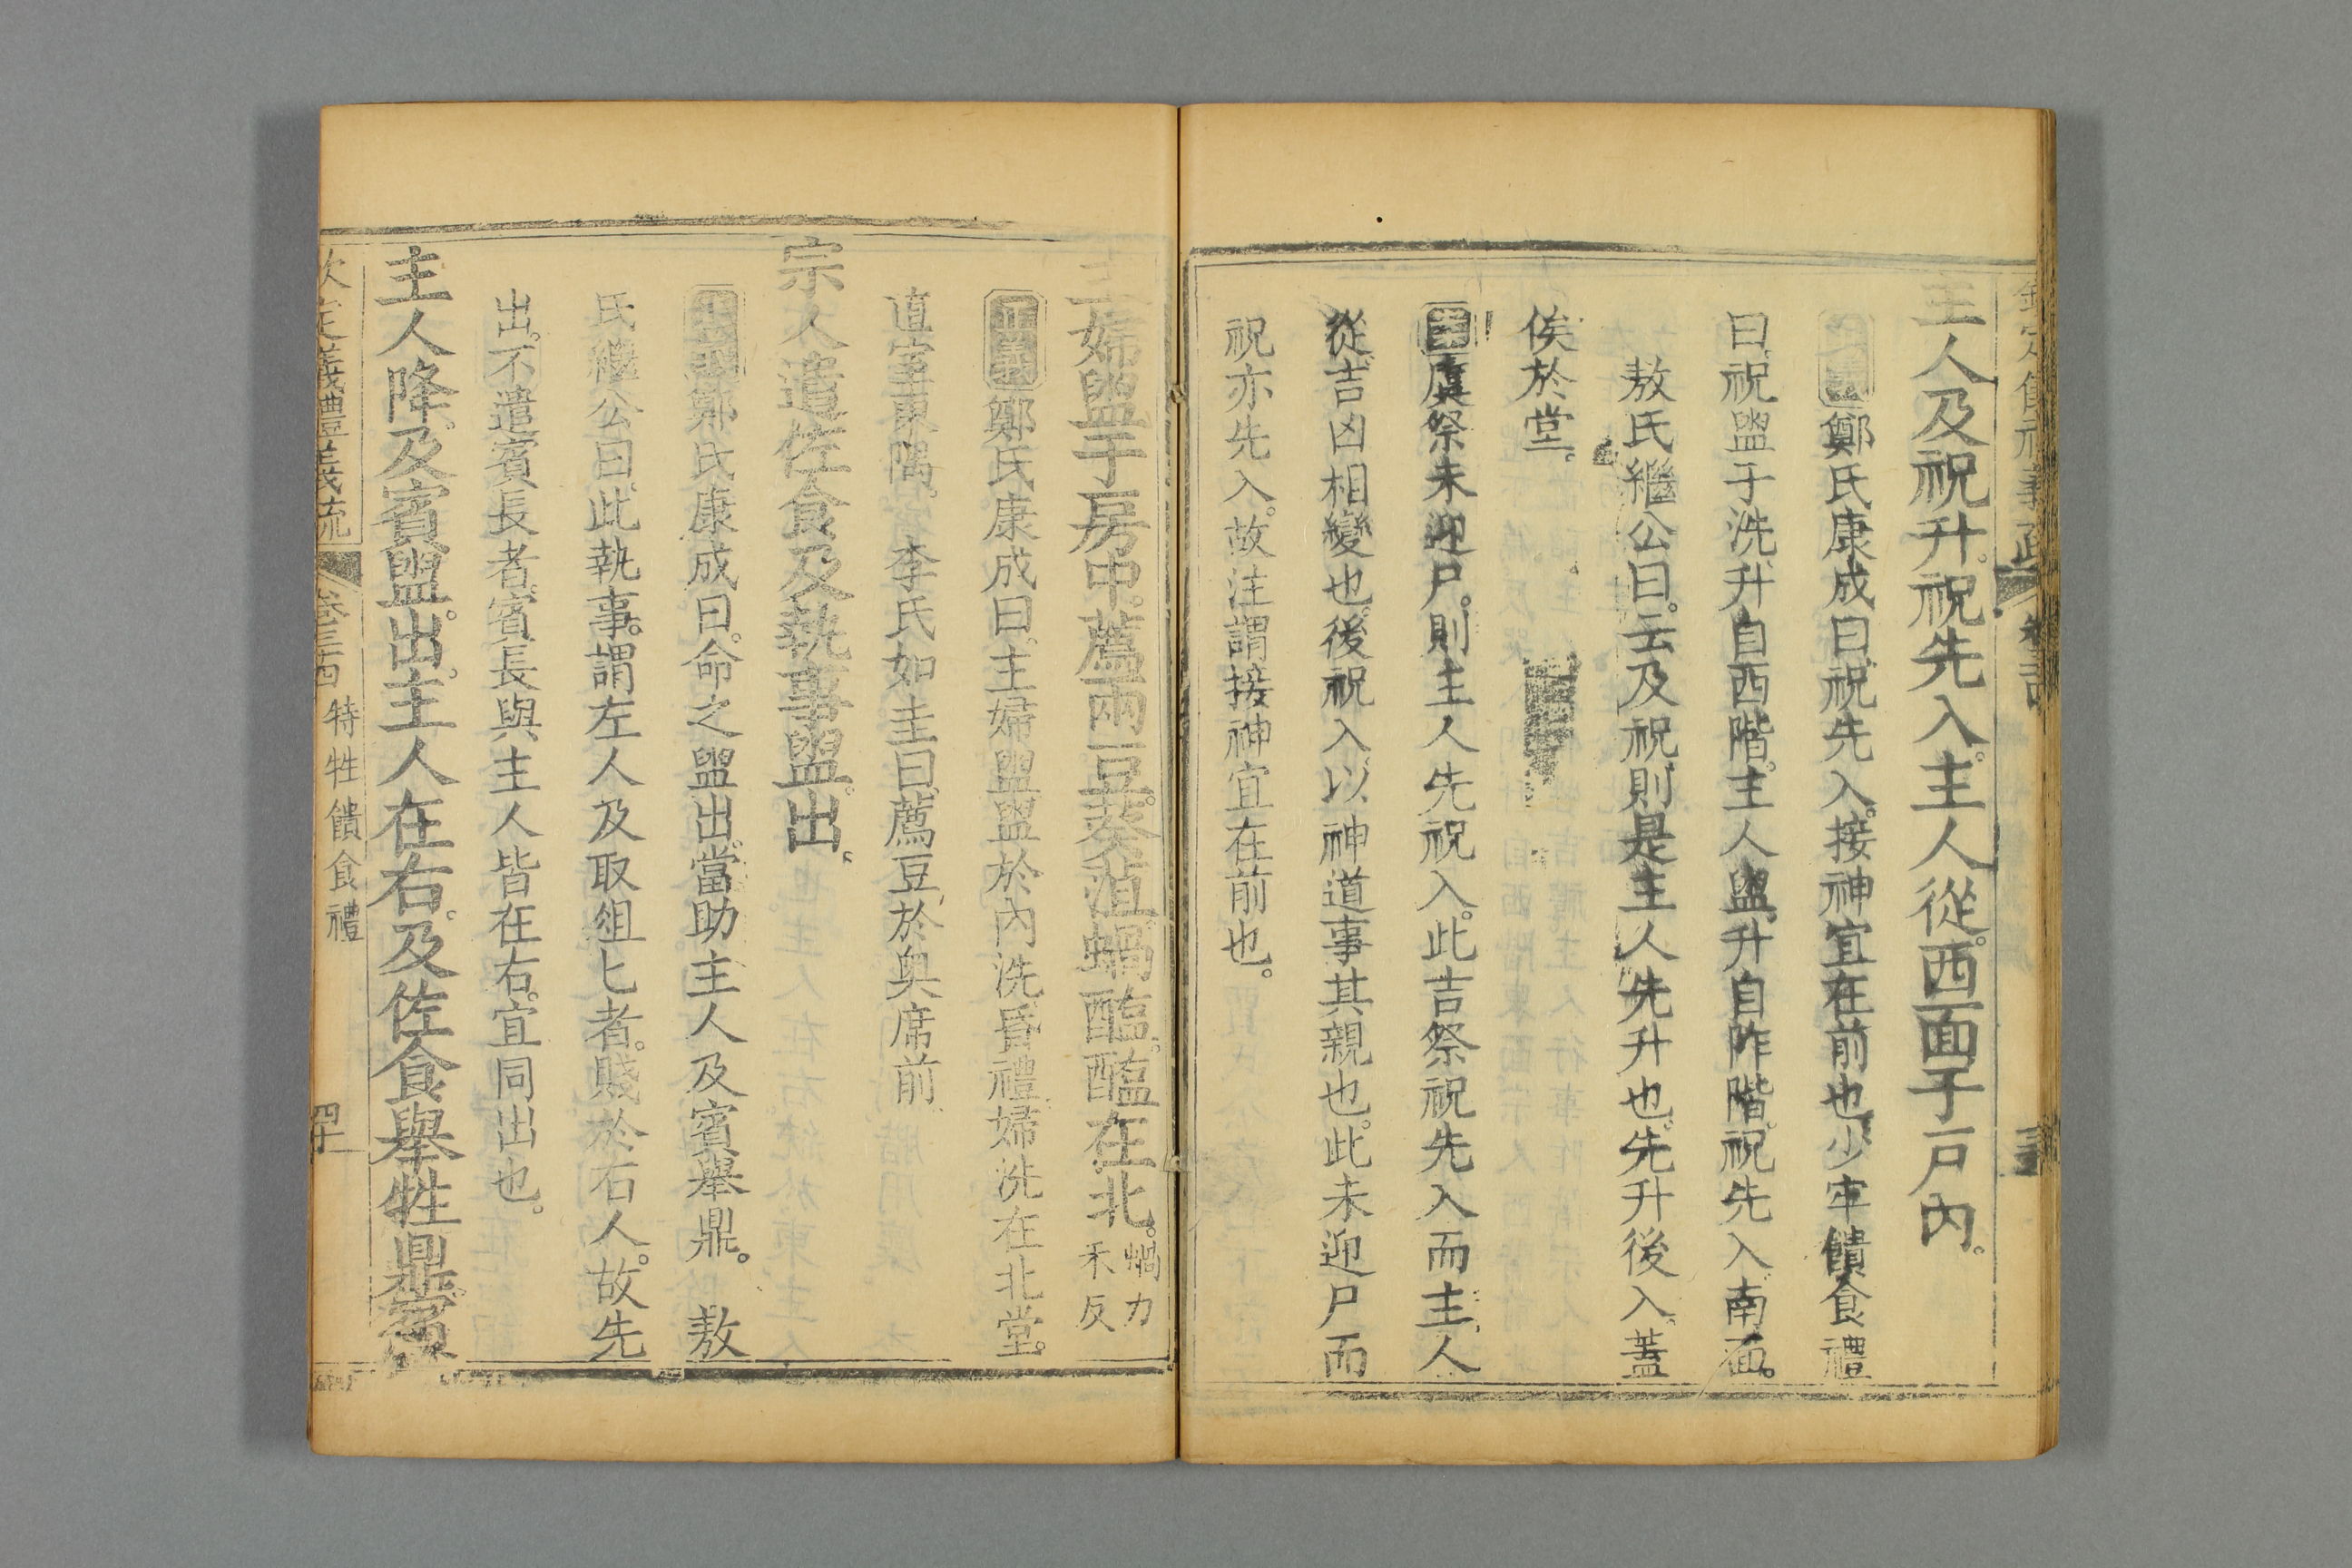 主人及祝升。祝先入。主人從。西面于戶內。
鄭氏康成曰。祝先入。接神宜在前也。少牢饋食禮
曰。祝盥于洗。升自西階。主人盥。升自阼階。祝先入南面。
敖氏繼公曰。云及祝。則是主人先升也。先升後入。蓋
俟於堂。
虞祭未迎尸。則主人先祝入。此吉祭祝先入而主人
從。吉凶相變也。後祝入。以神道事其親也。此未迎尸而
祝亦先入。故注謂接神宜在前也。
主婦盥于房中。薦兩豆。葵菹蝸醢。醢在北。蝸力禾反
正義鄭氏康成曰。主婦盥。盥於內洗。昏禮婦洗在北堂。
直室東隅。 李氏如圭曰。薦豆於奧席前
宗人遣佐食及執事盥。出。
正義鄭氏康成曰。命之盥出。當助主人及賓舉鼎。 敖
氏繼公曰。此執事。謂左人及取俎匕者。賤於右人。故先
出。不遣賓長者。賓長與主人皆在右。宜同出也。
主人降。及賓盥。出。主人在右。及佐食舉牲鼎。賓
欽定儀禮義疏 卷三十四 特牲饋食禮 四十